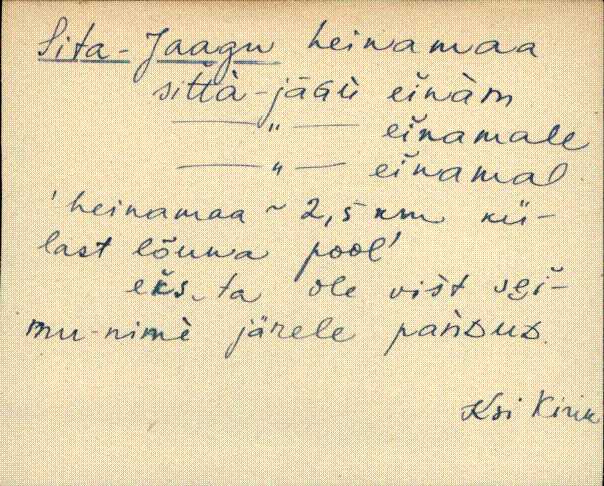 Sita-Jaagu heinamaa
sittà-jāGù eĭnàm
—„— eĭnamale
—„— eĭnamal
'heinamaa ~ 2,5 km kü-
last lõuna pool'
eks ta ole vist sɐĭ-
mu-nimè järele pànDuD.
Ksi Kirik